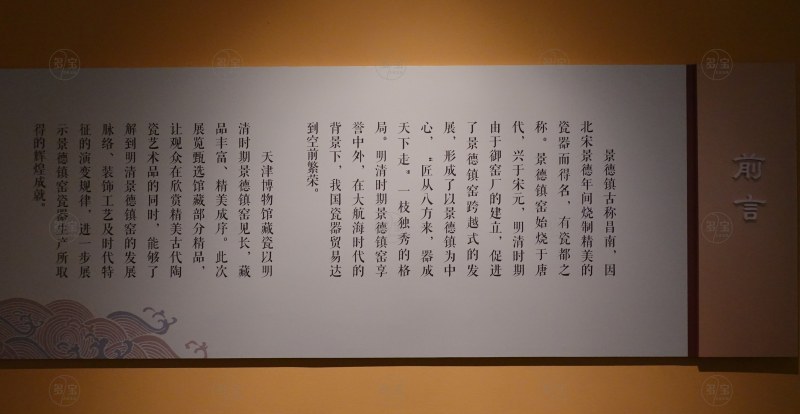 前言
景德镇古称昌南，因
北宋景德年间烧制精美的
瓷器而得名，有瓷都之
称。景德镇窑始烧于唐
代，兴于宋元，明清时期
由于御窑厂的建立，促进
了景德镇窑跨越式的发
展，形成了以景德镇为中
心，“匠从八方来，器成
天下走”一枝独秀的格
局。明清时期景德镇窑享
誉中外，在大航海时代的
背景下，我国瓷器贸易达
到空前繁荣。
天津博物馆藏瓷以明
清时期景德镇窑见长，藏
品丰富、精美成序。此次
展览甄选馆藏部分精品，
让观众在欣赏精美古代陶
瓷艺术品的同时，能够了
解到明清景德镇窑的发展
脉络、装饰工艺及时代特
征的演变规律，进一步展
示景德镇窑瓷器生产所取
得的辉煌成就。